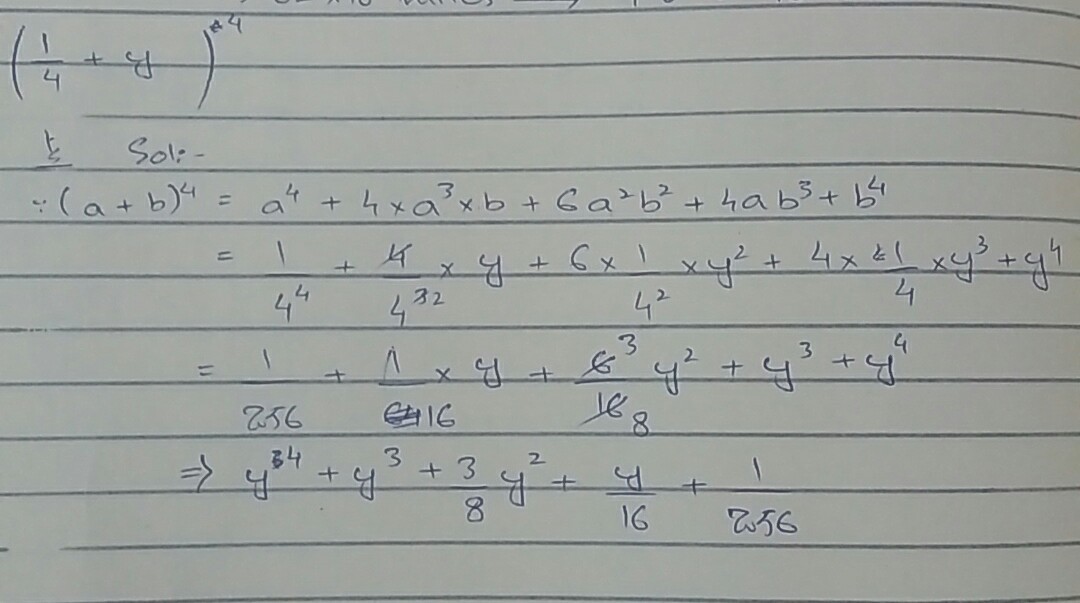 (1/4 + y)^4
Sol:-
∵ (a + b)^4 = a^4 + 4 × a^3 × b + 6a^2b^2 + 4ab^3 + b^4
= 1/4^4 + 4/4^32 × y + 6 × 1/4^2 × y^2 + 4 × 1/4 × y^3 + y^4
= 1/256 + 1/16 × y + 6 3/16 8 y^2 + y^3 + y^4
⇒ y^4 + y^3 + 3/8 y^2 + y/16 + 1/256